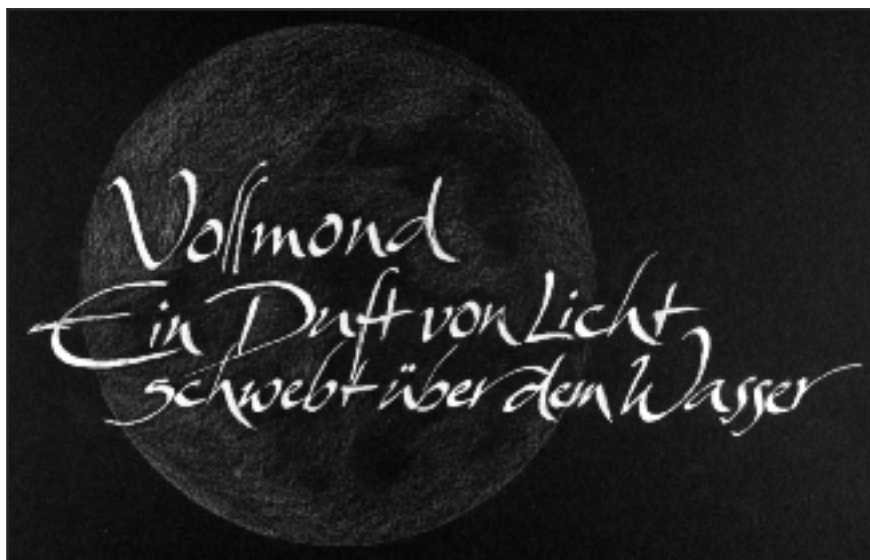 Vollmond
Ein Duft von Licht
schwebt über dem Wasser